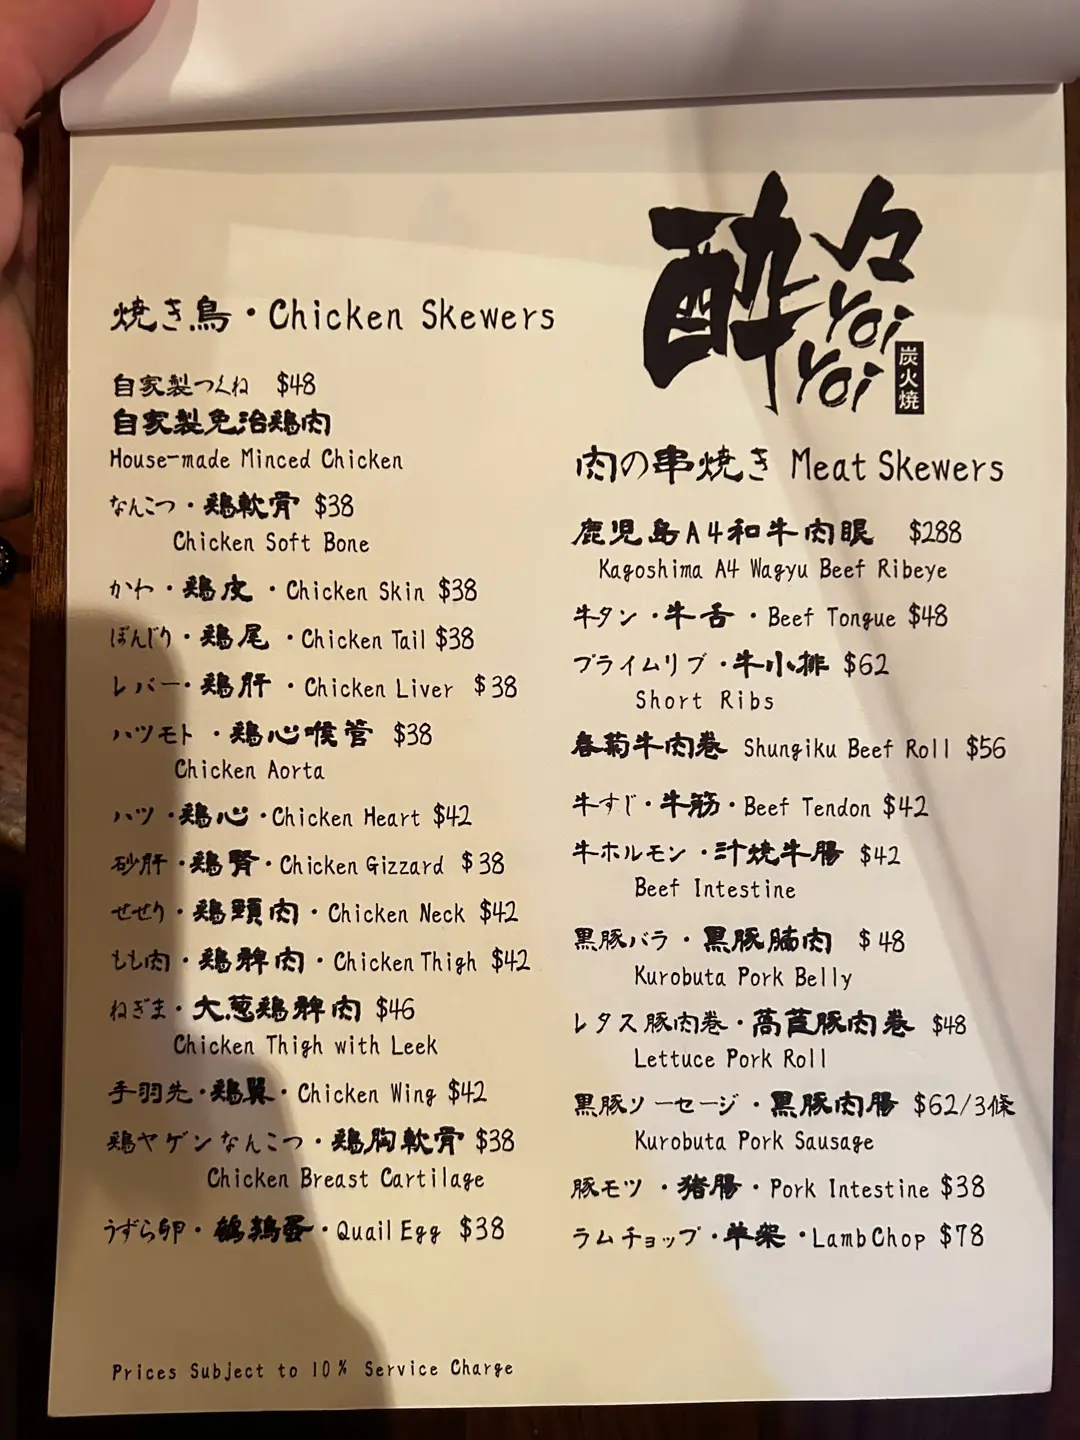 酔々
Yoi
Yoi
炭火焼
焼き鳥・Chicken Skewers
自家製つくね $48
自家製免治鶏肉
House-made Minced Chicken
なんこつ・鶏軟骨 $38
Chicken Soft Bone
かわ・鶏皮・Chicken Skin $38
ぼんじり・鶏尾・Chicken Tail $38
レバー・鶏肝・Chicken Liver $38
ハツモト・鶏心喉管 $38
Chicken Aorta
ハツ・鶏心・Chicken Heart $42
砂肝・鶏腎・Chicken Gizzard $38
せせり・鶏頸肉・Chicken Neck $42
もも肉・鶏髀肉・Chicken Thigh $42
ねぎま・大葱鶏髀肉 $46
Chicken Thigh with Leek
手羽先・鶏翼・Chicken Wing $42
鶏ヤゲンなんこつ・鶏胸軟骨 $38
Chicken Breast Cartilage
うずら卵・鵪鶉蛋・Quail Egg $38
肉の串焼き Meat Skewers
鹿児島A4和牛肉眼 $288
Kagoshima A4 Wagyu Beef Ribeye
牛タン・牛舌・Beef Tongue $48
プライムリブ・牛小排 $62
Short Ribs
春菊牛肉巻 Shungiku Beef Roll $56
牛すじ・牛筋・Beef Tendon $42
牛ホルモン・汁焼牛腸 $42
Beef Intestine
黒豚バラ・黒豚腩肉 $48
Kurobuta Pork Belly
レタス豚肉巻・萵苣豚肉巻 $48
Lettuce Pork Roll
黒豚ソーセージ・黒豚肉腸 $62/3條
Kurobuta Pork Sausage
豚モツ・猪腸・Pork Intestine $38
ラムチョップ・羊架・Lamb Chop $78
Prices Subject to 10% Service Charge